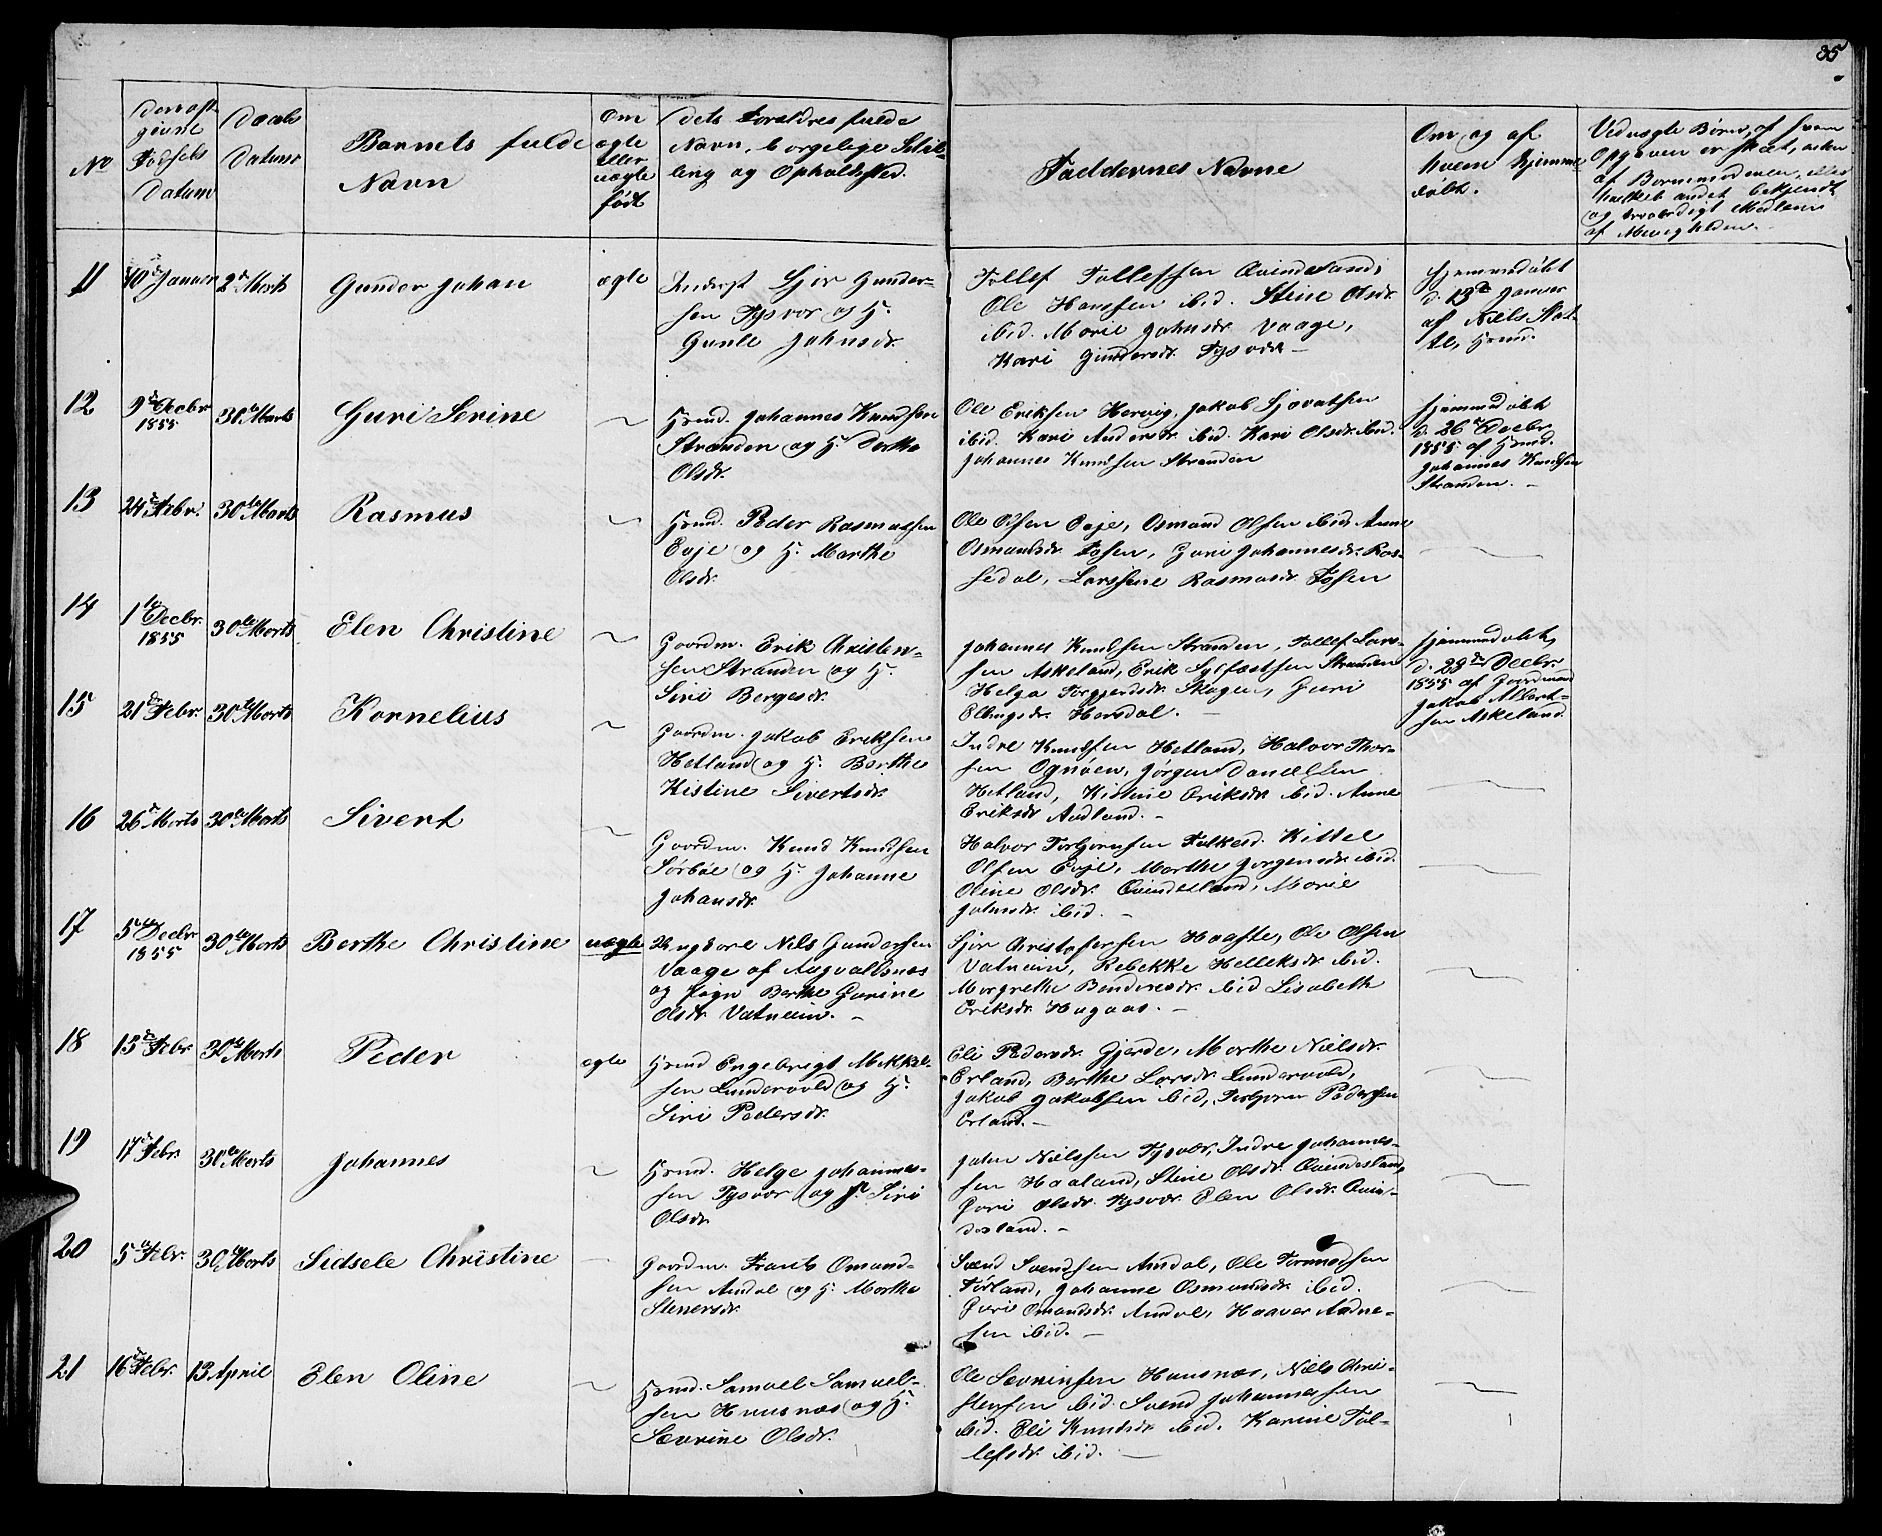 35
No
Deres op-
givne
Fødsels
Datum
Daabs
Datum
Barnets fulde
Navn
Om
ægte
eller
uægte
født
Dets Forældres fulde
Navn, borgelige Stil-
ling og Opholdsted.
Faddernes Navne
Om og af
hvem Hjemme-
døbt.
Ved uægte Børn, af hvem
Opgaven er skeet, enten
af Barnemoderen, eller
hvilket andet bekjendt
og troværdigt Medlem
af Menigheden.
11
10de Januar
2de Marts
Gunder Johan
ægte
Inderst Sjur Gunder-
sen Tysvær og H.
Gunle Johnsdr.
Tollef Tollefsen Qvindesland,
Ole Hansen ibid. Stine Olsdr.
ibid. Marie Johnsdr. Vaage,
Kari Gundersdr. Tysvær
Hjemmedøbt
d. 13de Januar
af Niels
Hsmd.
12
9de Decbr
1855
30te Marts
Guri Serine
Hsmd. Johannes Knudsen
Stranden og H. Dorthe
Olsdr.
Ole Eriksen Hervig, Jakob Sjovatsen
ibid. Kari Andersdr. ibid. Kari Olsdr. ibid.
Johannes Knudsen Stranden
Hjemmedøbt
d. 26de Decbr
1855 af Hsmd.
Johannes Knudsen
Stranden.
13
24de Febr.
30te Marts
Rasmus
Hsmd. Peder Rasmussen
Evje og H. Marthe
Olsdr.
Ole Olsen Evje, Osmund Olsen ibid. Anne
Osmundsdr. Fosen, Guri Johannesdr. Ros-
sedal, Larssine Rasmusdr. Fosen
14
1te Decbr.
1855
30te Marts
Elen Christine
Gaardm. Erik Christen-
sen Stranden og H.
Siri Bergesdr.
Johannes Knudsen Stranden, Tollef Lars-
sen Askeland, Erik Sylfæstsen Stranden
Helga Torgjerdsdr. Skogen, Guri
Ellingsdr. Hersdal.
Hjemmedøbt,
d. 28de Decbr.
1855 af Gaardmand
Jakob Albert-
sen Askeland.
15
21de Febr.
30te Marts
Kornelius
Gaardm. Jakob Eriksen
Hetland og H. Berthe
Kistine Sivertsdr.
Indre Knudsen Hetland, Halvor Thor-
sen Ognøen, Jørgen Danielsen
Hetland, Kistine Eriksdr. ibid. Anne
Eriksdr. Aadland.
16
26de Marts
30te Marts
Sivert
Gaardm. Knud Knudsen
Sørbøe og H. Johanne
Johansdr.
Halvor Torbjørnsen Falkeid. Kittel
Olsen Evje, Marthe Jørgensdr. ibid.
Oline Olsdr. Qvindesland, Marie
Johnsdr. ibid.
17
5te Decbr
1855
30te Marts
Berthe Christine
uægte
Ungkarl Niels Gundersen
Vaage af Augvaldsnæs
og Pigen Berthe Gurine
Olsdr. Vatneim.
Sjur Christofersen Haafte, Ole Olsen
Vatneim, Rebekke Helleksdr. ibid.
Margrethe Bendixsdr. ibid Lisabeth
Eriksdr. Hagaas.
18
13de Febr
30te Marts
Peder
ægte
Hsmd Engebrigt Mikkel-
sen Lundervold og H.
Siri Pedersdr.
Eli Pedersdr. Gjerde, Marthe Nielsdr.
Erland, Berthe Larsdr. Lundervold,
Jakob Jakobsen ibid, Torbjørn Pedersen
Erland.
19
17de Febr.
30te Marts
Johannes
Hsmd. Helge Johannes-
sen Tysvær og H. Siri
Olsdr.
John Nielssen Tysvær, Indre Johannes-
sen Haaland, Stine Olsdr. Qvindesland,
Guri Olsdr. Tysvær Elen Olsdr. Qvin-
desland.
20
5te Febr.
30te Marts
Sidsele Christine
Gaardm. Frants Omund-
sen Amdal og H. Marthe
Stenersdr.
Svend Svendsen Amdal, Ole Tormodsen
Førland, Johanne Osmundsdr. ibid.
Guri Omundsdr. Amdal, Haaver Aadne-
sen ibid.
21
16de Febr.
13 April
Elen Oline
Hsmd. Samuel Samuel-
sen Huusnæs og H.
Severine Olsdr.
Ole Severinsen Huusnæs, Niels Chri-
stensen ibid. Svend Johannessen
ibid. Eli Knudsdr. ibid. Karine Tol-
lefsdr. ibid.